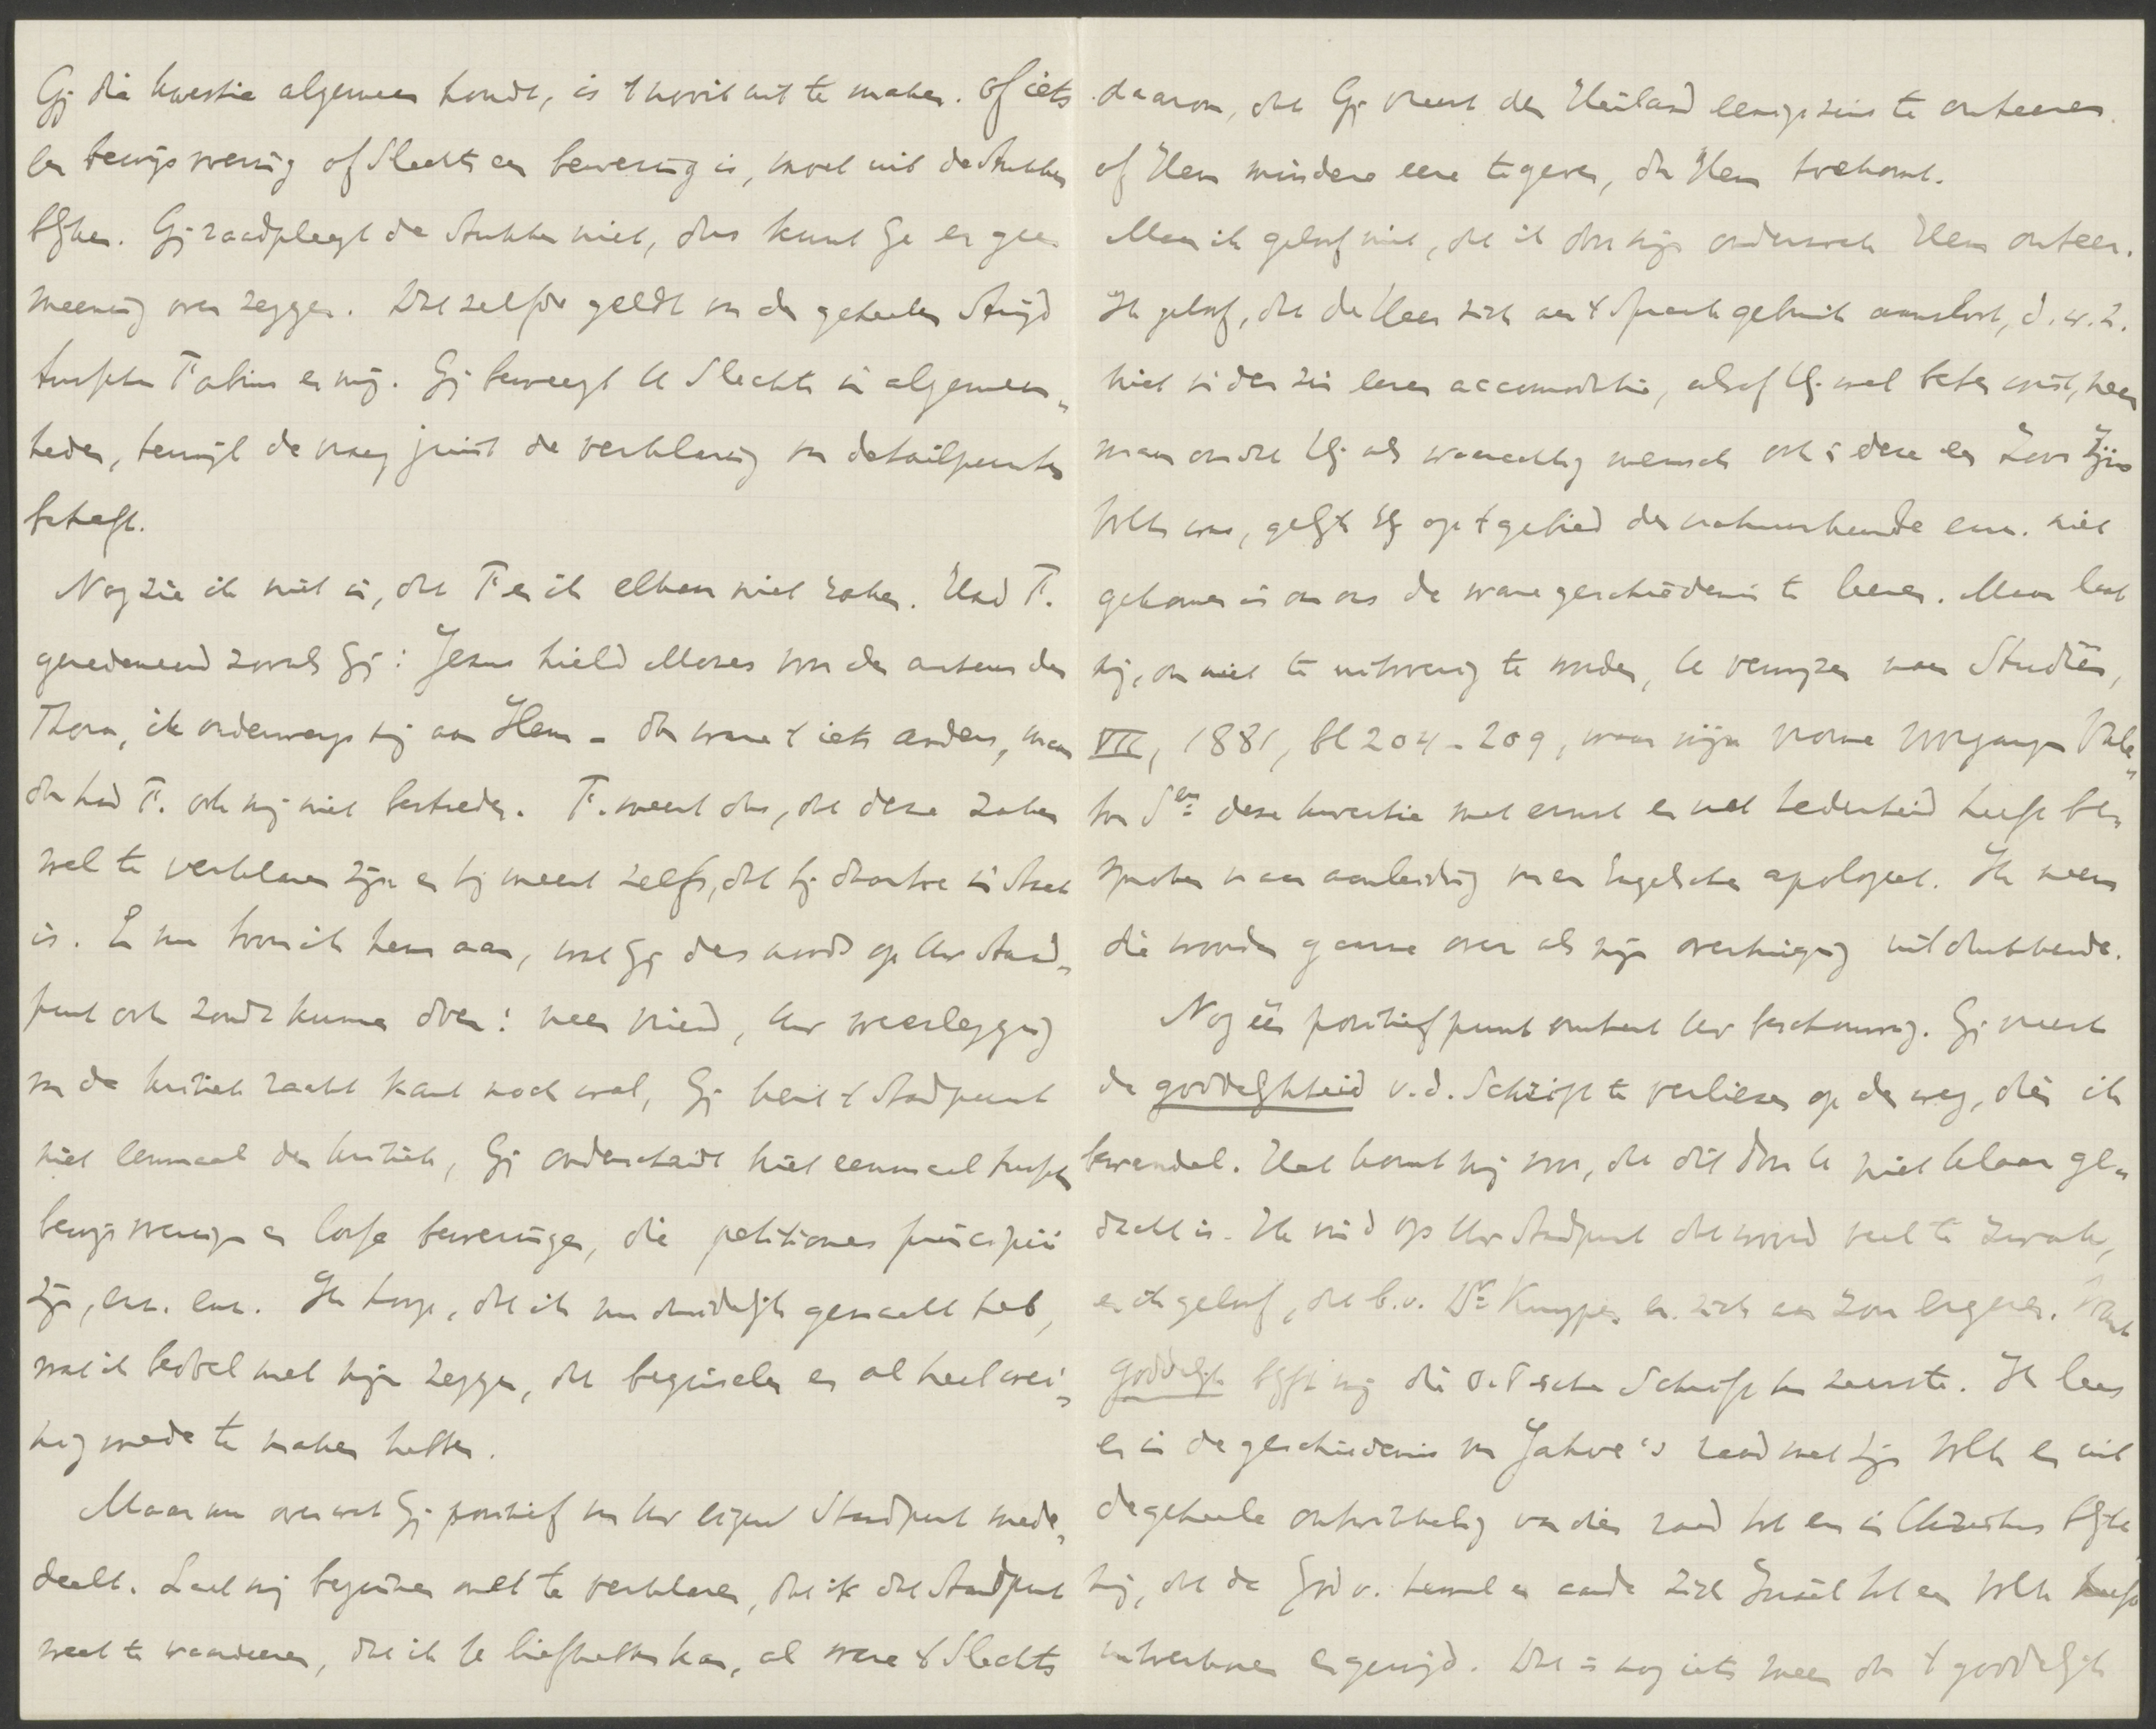 Gij die kwestie algemeen houdt, is 't nooit uit te maken. Of iets
een bewijsvoering of slechts een bewering is, moet uit de stukken
blijken. Gij raadpleegt de stukken niet, dus kunt Ge er geen
meening over zeggen. Dat zelfde geldt van den geheelen strijd
tusschen Fabius en mij. Gij beweegt U slechts in algemeen„
heden, terwijl de vraag juist de verklaring van detailpunten
betreft.
Nog zie ik niet in, dat F. en ik elkaar niet raken. Had F.
geredeneerd zooals Gij: Jezus hield Mozes voor den auteur der
Thora, ik onderwerp mij aan Hem - dan ware 't iets anders, maar
dan had F. ook mij niet bestreden. F. meent dus, dat deze zaken
wel te verklaren zijn en hij meent zelfs, dat hij daartoe in staat
is. En nu toon ik hem aan, wat Gij desnoods op Uw stand„
punt ook zoudt kunnen doen: neen vriend, Uw weerlegging
van de kritiek raakt kant noch wal, Gij kent 't standpunt
niet eenmaal der kritiek, Gij onderscheidt niet eenmaal tusschen
bewijsvoeringen en losse beweringen, die petitiones principii
zijn, enz. enz. Ik hoop, dat ik nu duidelijk gemaakt heb,
wat ik bedoel met mijn zeggen, dat beginselen er al heel wei„
nig mede te maken hebben.
Maar nu over wat Gij positief van Uw eigen standpunt mede„
deelt. Laat mij beginnen met te verklaren, dat ik dat standpunt
weet te waardeeren, dat ik U liefhebben kan, al ware 't slechts
daarom, dat Gij vreest den Heiland eenigszins te onteeren
of Hem mindere eere te geven, dan Hem toekomt.
Maar ik geloof niet, dat ik door mijn onderzoek Hem onteer.
Ik geloof, dat de Heer zich aan 't spraakgebruik aansloot, d.w.z.
niet in den zin eener accomodatie, alsof Hij wel beter wist, neen
maar omdat Hij als waarachtig mensch ook in deze een Zoon Zijns
Volks was, gelijk Hij op 't gebied der natuurkunde enz. niet
gekomen is om ons de ware geschiedenis te leeren. Maar laat
mij, om niet te uitvoerig te worden, U verwijzen naar Studiën,
VII, 1881, bl 204-209, waar mijn vrome voorganger Vale„
ton Sen deze kwestie met ernst en met teederheid heeft be„
sproken naar aanleiding van een Engelschen apologeet. Ik neem
die woorden gaarne over als mijn overtuiging uitdrukkende.
Nog één positief punt omtrent Uw beschouwing. Gij vreest
de goddelijkheid v.d. Schrift te verliezen op den weg, dien ik
bewandel. Het komt mij voor, dat dit door U niet klaar ge„
dacht is. Ik vind op Uw standpunt dat woord veel te zwak,
en ik geloof, dat b.v. Dr Kuyper er zich aan zou ergeren. Want
goddelijk blijft mij die O.T.ische Schrift ten zeerste. Ik lees
er in de geschiedenis van Jahve's raad met zijn Volk en uit
de geheele ontwikkeling van dien raad tot en in Christus blijkt
mij, dat de God v. hemel en aarde zich Israël tot een Volk heeft
uitverkoren en gewijd. Dat is nog iets meer dan 't goddelijk